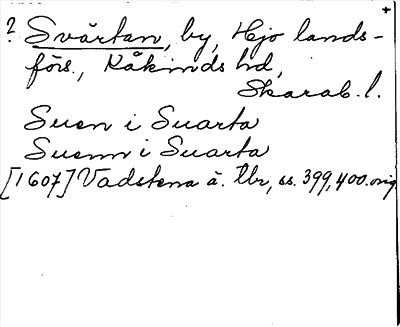 +
? Svärtan, by, Hjo lands-
förs., Kåkinds hd,
Skarab. l.
Suen i Suarta
Suenn i Suarta
[1607] Vadstena ä. tbr, ss. 399, 400. orig